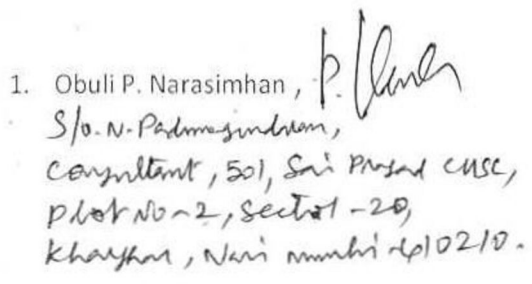 1. Obuli P. Narasimhan, P.
S/o. N. Padmagindran,
Consultant, 501, Sai Prasad CHSC,
Plot No-2, Sector-20,
Kharghar, Navi mumbai 410210.